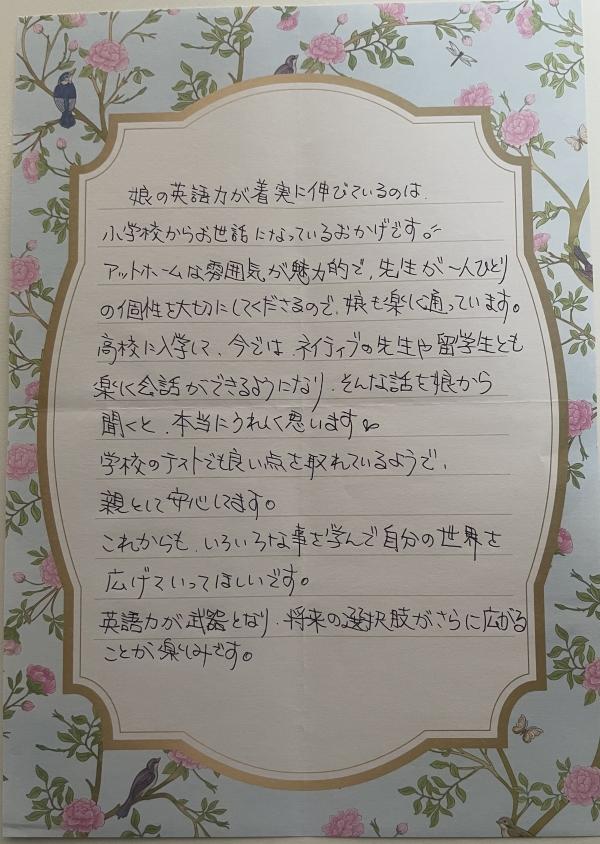 娘の英語力が着実に伸びているのは、
小学校からお世話になっているおかげです。
アットホームは雰囲気が魅力的で、先生が一人ひとり
の個性を大切にしてくださるので、娘も楽しく通っています。
高校に入学して、今では、ネイティブの先生や留学生とも
楽に会話ができるようになり、そんな話を娘から
聞くと、本当にうれしく思います♡
学校のテストでも良い点を取れているようで、
親として安心してます。
これからも、いろいろな事を学んで自分の世界を
広げていってほしいです。
英語力が武器となり、将来の選択肢がさらに広がる
ことが楽しみです。